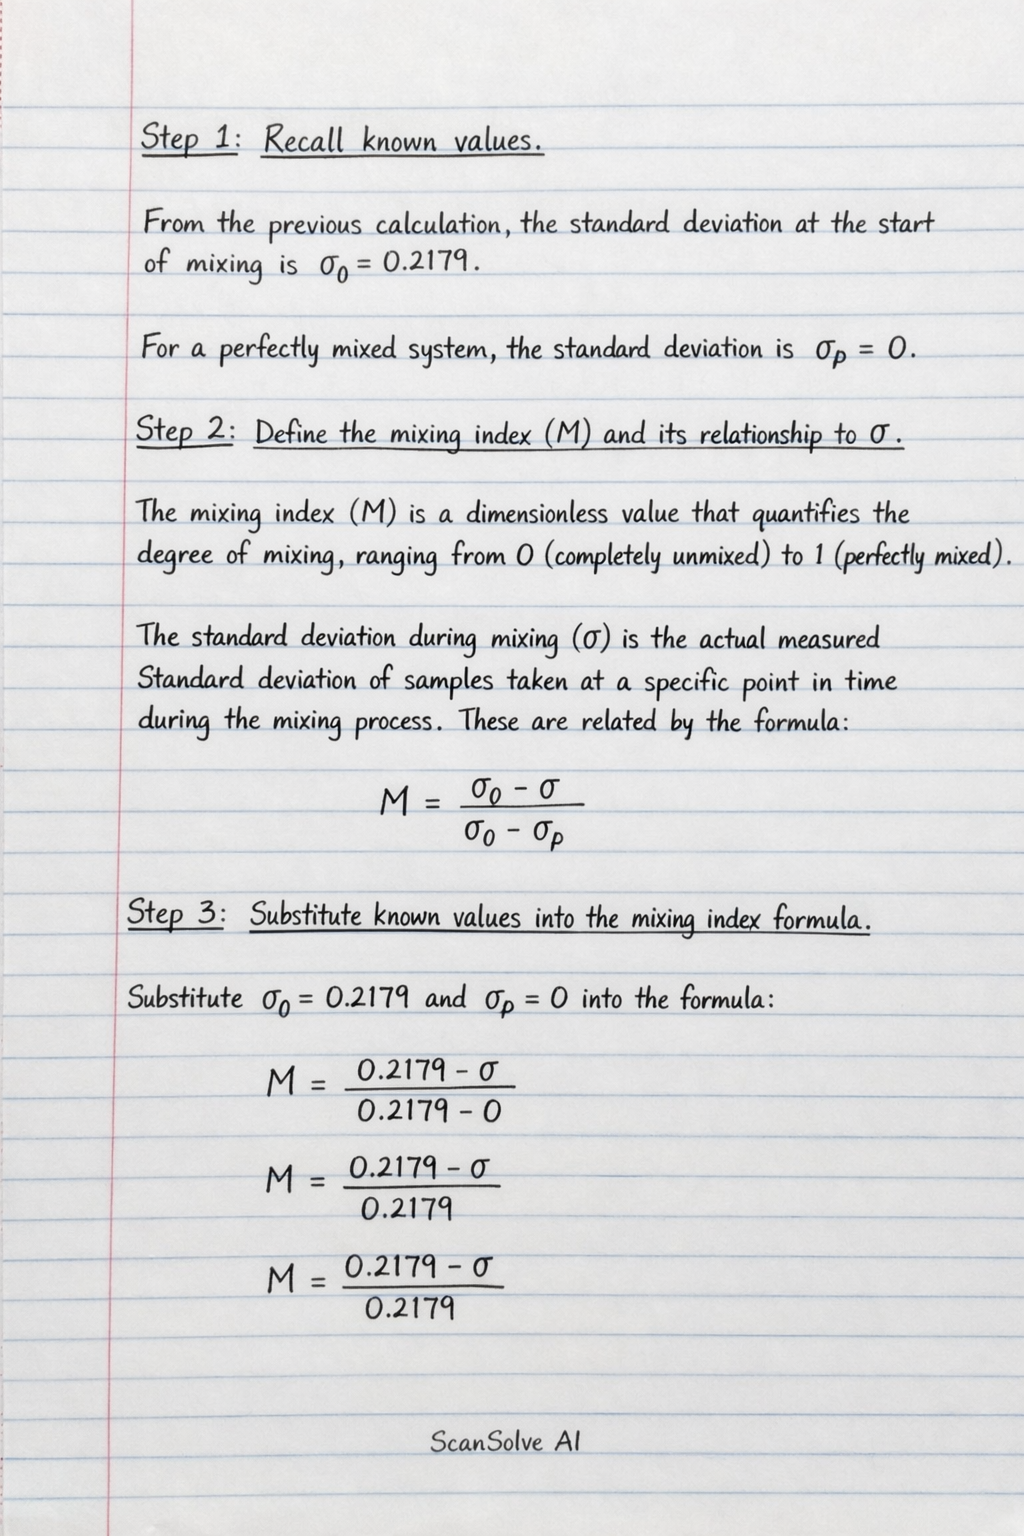 Step 1: Recall known values.
From the previous calculation, the standard deviation at the start
of mixing is σ₀ = 0.2179.
For a perfectly mixed system, the standard deviation is σₚ = 0.
Step 2: Define the mixing index (M) and its relationship to σ.
The mixing index (M) is a dimensionless value that quantifies the
degree of mixing, ranging from 0 (completely unmixed) to 1 (perfectly mixed).
The standard deviation during mixing (σ) is the actual measured
Standard deviation of samples taken at a specific point in time
during the mixing process. These are related by the formula:
M = (σ₀ - σ) / (σ₀ - σₚ)
Step 3: Substitute known values into the mixing index formula.
Substitute σ₀ = 0.2179 and σₚ = 0 into the formula:
M = (0.2179 - σ) / (0.2179 - 0)
M = (0.2179 - σ) / 0.2179
M = (0.2179 - σ) / 0.2179
ScanSolve AI